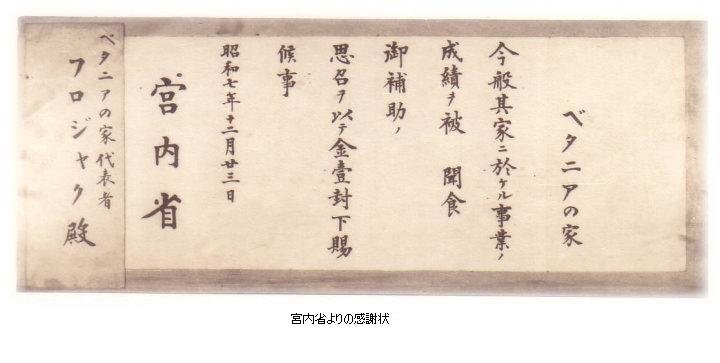 ベタニアの家
今般其家ニ於ケル事業ノ
成績ヲ被 聞食
御補助ノ
思召ヲ以テ金壹封下賜
候事
昭和七年十二月廿三日
宮内省
ベタニアの家代表者
フロジャク殿
宮内省よりの感謝状